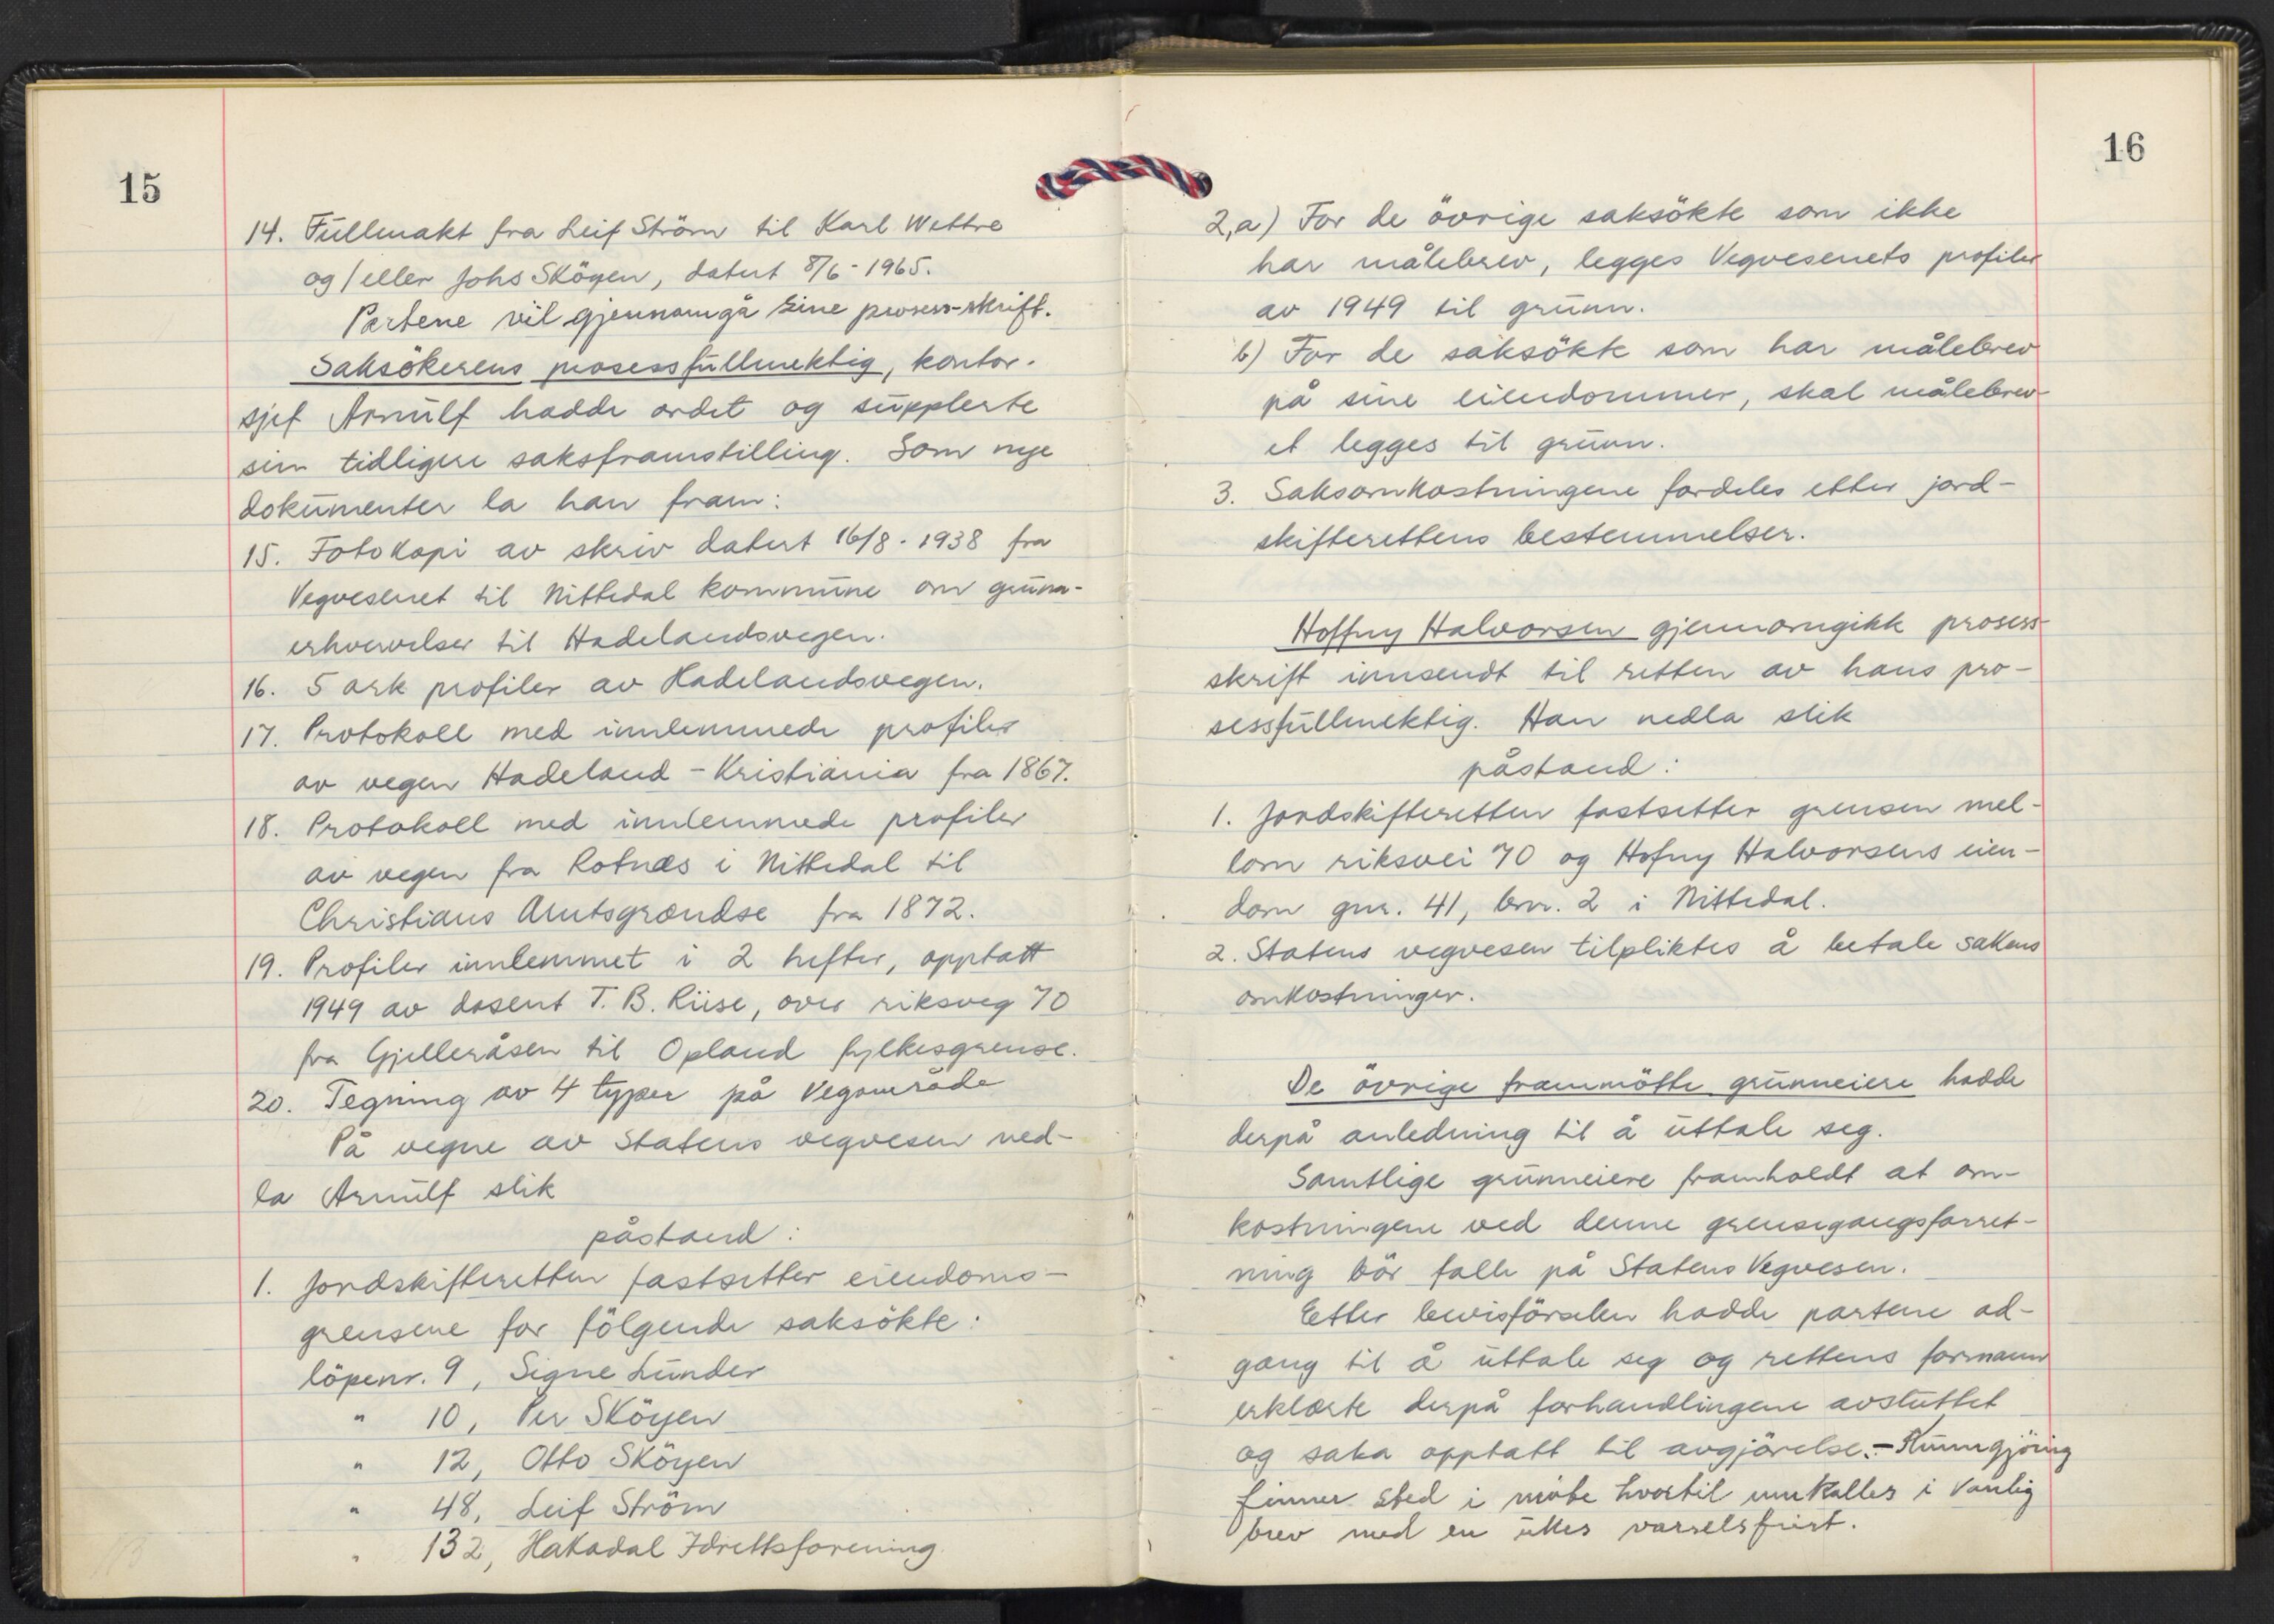 15
14. Fullmakt fra Leif Ström til Karl Wettre
og/eller Johs Sköyen, datert 8/6-1965.
Partene vil gjennomgå sine prosess-skrift.
Saksökerens prosessfullmektig, kontor-
sjef Arnulf hadde ordet og supplerte
sin tidligere saksframstilling. Som nye
dokumenter la han fram:
15. Fotokopi av skriv datert 16/8-1938 fra
Vegvesenet til Nittedal kommune om grunn-
erhvervelser til Hadelandsvegen.
16. 5 ark profiler av Hadelandsvegen.
17. Protokoll med innlemmede profiler
av vegen Hadeland - Kristiania fra 1867.
18. Protokoll med innlemmede profiler
av vegen fra Rotnæs i Nittedal til
Christians Amtsgrændse fra 1872.
19. Profiler innlemmet i 2 hefter, opptatt
1949 av dosent T. B. Riise, over riksveg 70
fra Gjelleråsen til Opland fylkesgrense.
20. Tegning av 4 typer på Vegområde
På vegne av Statens vegvesen ned-
la Arnulf slik
påstand:
1. Jordskifteretten fastsetter eiendoms-
grensene for fölgende saksökte:
löpenr. 9, Signe Lunder
" 10, Per Sköyen
" 12, Otto Sköyen
" 48, Leif Ström
" 132, Hakadal Idrettsforening
16
2,a) For de övrige saksökte som ikke
har målebrev, legges Vegvesenets profiler
av 1949 til grunn.
b) For de saksökte som har målebrev
på sine eiendommer, skal målebrev-
et legges til grunn.
3. Saksomkostningene fordeles etter jord-
skifterettens bestemmelser.
Hoffny Halvorsen gjennomgikk prosess-
skrift innsendt til retten av hans pro-
sessfullmektig. Han nedla slik
påstand:
1. Jordskifteretten fastsetter grensen mel-
lom riksvei 70 og Hofny Halvorsens eien-
dom gnr. 41, bnr. 2 i Nittedal.
2. Statens vegvesen tilpliktes å betale sakens
omkostninger.
De övrige frammötte grunneiere hadde
derpå anledning til å uttale seg.
Samtlige grunneiere framholdt at om-
kostningene ved denne grensegangsforret-
ning bör falle på Statens Vegvesen.
Etter bevisförselen hadde partene ad-
gang til å uttale seg og rettens formann
erklærte derpå forhandlingene avsluttet
og saka opptatt til avgjörelse. - Kunngjöring
finner sted i möte hvortil innkalles i vanlig
brev med en ukes varselsfrist.